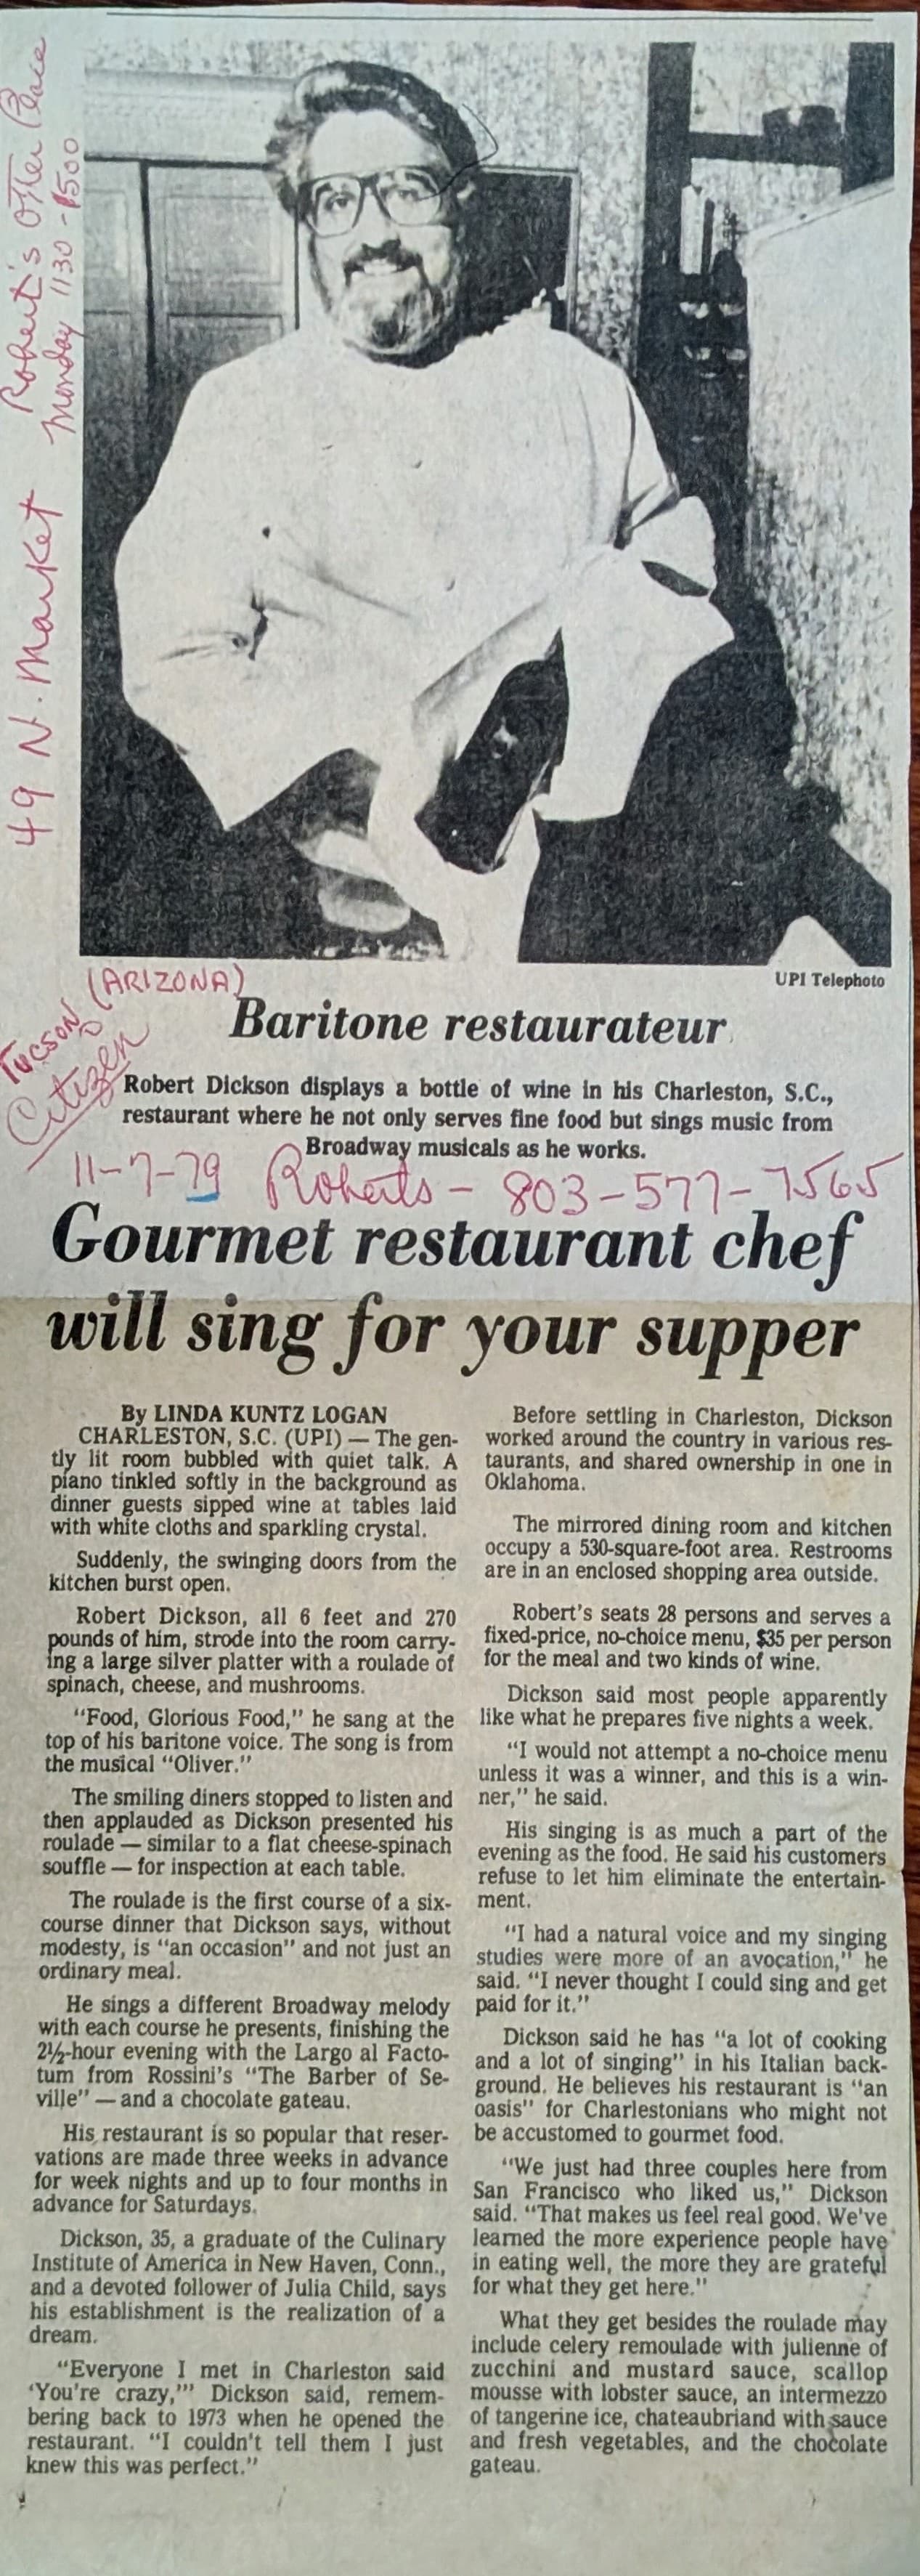 Robert's Other Place
Monday 1130 - $500
49 N. Market
UPI Telephoto
(ARIZONA)
Tucson
Citizen
Baritone restaurateur
Robert Dickson displays a bottle of wine in his Charleston, S.C.,
restaurant where he not only serves fine food but sings music from
Broadway musicals as he works.
11-7-79 Roberts - 803-577-7565
Gourmet restaurant chef
will sing for your supper
By LINDA KUNTZ LOGAN
CHARLESTON, S.C. (UPI) — The gen-
tly lit room bubbled with quiet talk. A
piano tinkled softly in the background as
dinner guests sipped wine at tables laid
with white cloths and sparkling crystal.
Suddenly, the swinging doors from the
kitchen burst open.
Robert Dickson, all 6 feet and 270
pounds of him, strode into the room carry-
ing a large silver platter with a roulade of
spinach, cheese, and mushrooms.
"Food, Glorious Food," he sang at the
top of his baritone voice. The song is from
the musical "Oliver."
The smiling diners stopped to listen and
then applauded as Dickson presented his
roulade — similar to a flat cheese-spinach
souffle — for inspection at each table.
The roulade is the first course of a six-
course dinner that Dickson says, without
modesty, is "an occasion" and not just an
ordinary meal.
He sings a different Broadway melody
with each course he presents, finishing the
2½-hour evening with the Largo al Facto-
tum from Rossini's "The Barber of Se-
ville" — and a chocolate gateau.
His restaurant is so popular that reser-
vations are made three weeks in advance
for week nights and up to four months in
advance for Saturdays.
Dickson, 35, a graduate of the Culinary
Institute of America in New Haven, Conn.,
and a devoted follower of Julia Child, says
his establishment is the realization of a
dream.
"Everyone I met in Charleston said
'You're crazy,'" Dickson said, remem-
bering back to 1973 when he opened the
restaurant. "I couldn't tell them I just
knew this was perfect."
Before settling in Charleston, Dickson
worked around the country in various res-
taurants, and shared ownership in one in
Oklahoma.
The mirrored dining room and kitchen
occupy a 530-square-foot area. Restrooms
are in an enclosed shopping area outside.
Robert's seats 28 persons and serves a
fixed-price, no-choice menu, $35 per person
for the meal and two kinds of wine.
Dickson said most people apparently
like what he prepares five nights a week.
"I would not attempt a no-choice menu
unless it was a winner, and this is a win-
ner," he said.
His singing is as much a part of the
evening as the food. He said his customers
refuse to let him eliminate the entertain-
ment.
"I had a natural voice and my singing
studies were more of an avocation," he
said. "I never thought I could sing and get
paid for it."
Dickson said he has "a lot of cooking
and a lot of singing" in his Italian back-
ground. He believes his restaurant is "an
oasis" for Charlestonians who might not
be accustomed to gourmet food.
"We just had three couples here from
San Francisco who liked us," Dickson
said. "That makes us feel real good. We've
learned the more experience people have
in eating well, the more they are grateful
for what they get here."
What they get besides the roulade may
include celery remoulade with julienne of
zucchini and mustard sauce, scallop
mousse with lobster sauce, an intermezzo
of tangerine ice, chateaubriand with sauce
and fresh vegetables, and the chocolate
gateau.